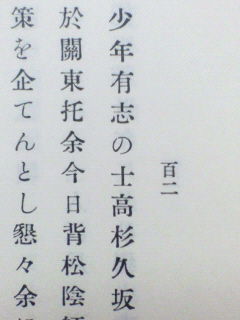 百二
少年有志の士高杉久坂
於關東托余今日背松陰師
策を企てんとし懇々余